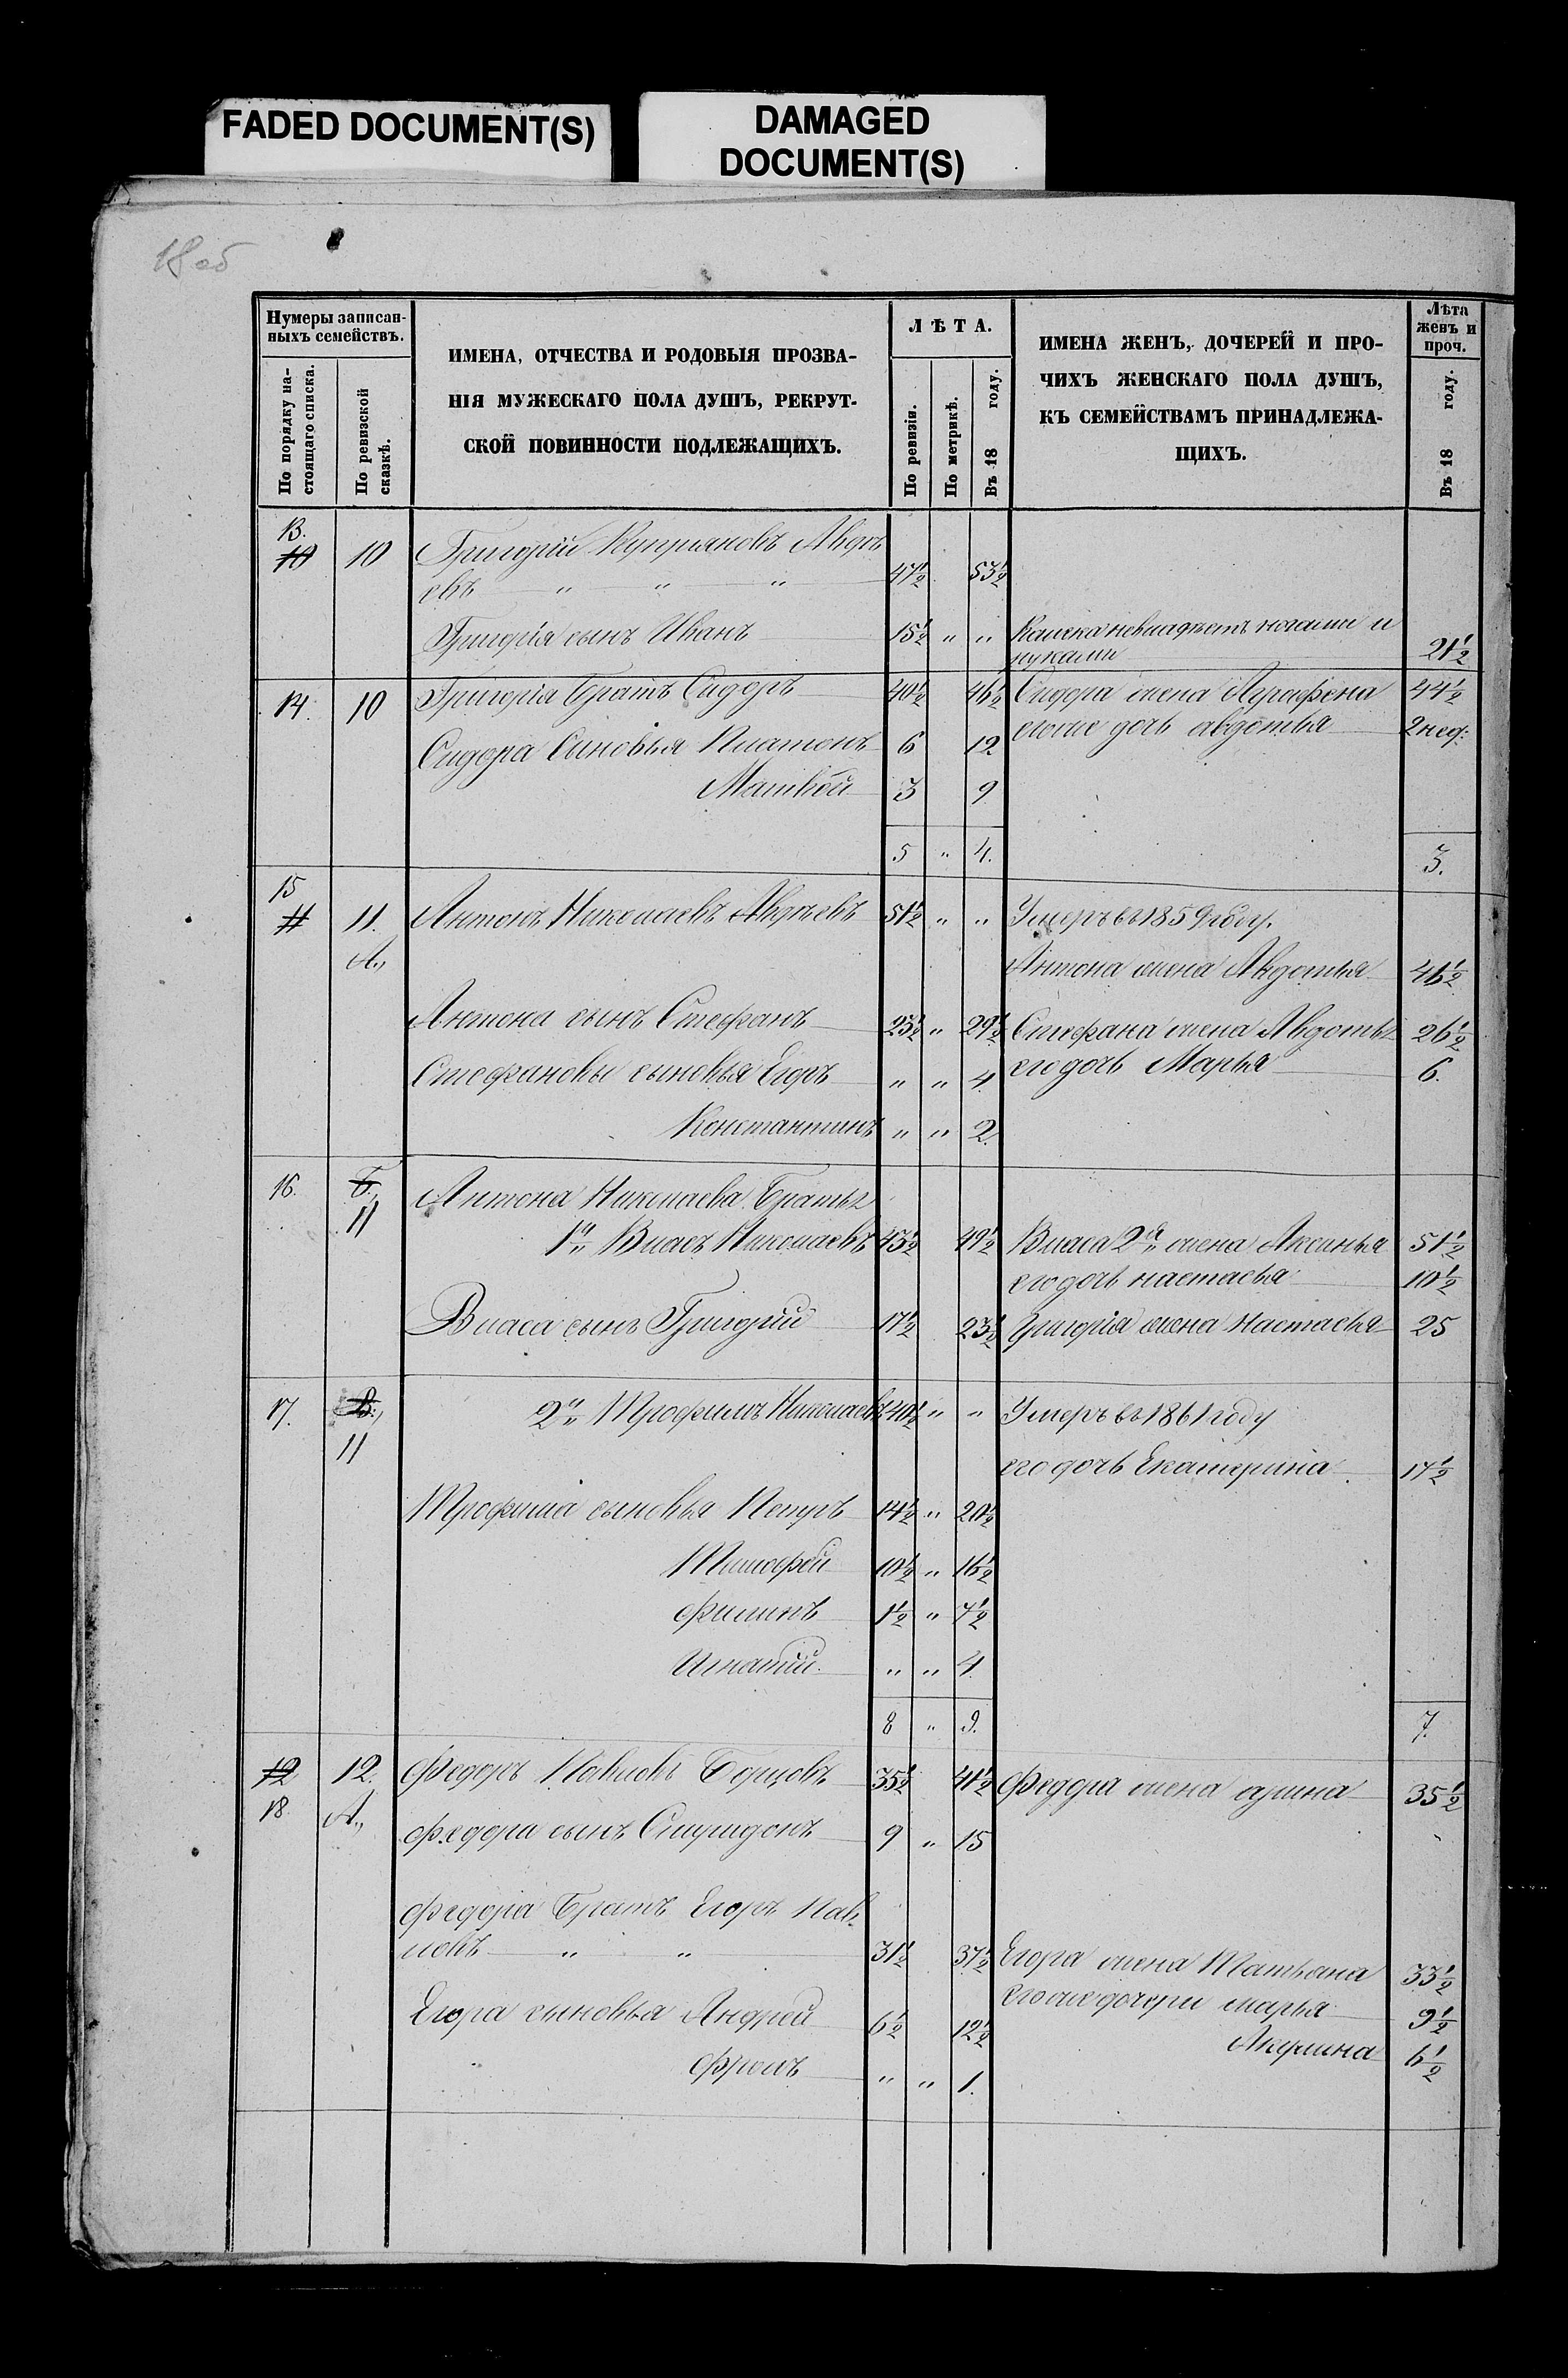 FADED DOCUMENT(S)
DAMAGED
DOCUMENT(S)
18 об
Нумеры записан-
ныхъ семействъ.
По порядку на-
стоящаго списка.
По ревизской
сказкѣ.
ИМЕНА, ОТЧЕСТВА И РОДОВЫЯ ПРОЗВА-
НІЯ МУЖЕСКАГО ПОЛА ДУШЪ, РЕКРУТ-
СКОЙ ПОВИННОСТИ ПОДЛЕЖАЩИХЪ.
ЛѢТА.
По ревизіи.
По метрикѣ.
Въ 18 году.
ИМЕНА ЖЕНЪ, ДОЧЕРЕЙ И ПРО-
ЧИХЪ ЖЕНСКАГО ПОЛА ДУШЪ,
КЪ СЕМЕЙСТВАМЪ ПРИНАДЛЕЖА-
ЩИХЪ.
Лѣта
женъ и
проч.
Въ 18 году.
13.
10 10 Григорій Куприяновъ Авдѣ
евъ " " " 47½ 53½
Григорія сынъ Иванъ 15½ " " Калека невладѣетъ ногами и
руками 21½
14. 10 Григорія братъ Сидоръ 40½ 46½ Сидора жена Аграфена 44½
егоже дочь авдотья 2 нед:
Сидора Сыновья Платонъ 6 12
Матвѣй 3 9
5 " 4. 3.
15
11 11. Антонъ Николаевъ Авдѣевъ 51½ " " Умеръ въ 1859 году.
А., Антона жена Авдотья 46½
Антона сынъ Стефанъ 23½ " 29½ Стефана жена Авдотья 26½
Стефановы сыновья Егоръ " " 4 его дочь Марья 6.
Константинъ " " 2.
16. Б., Антона Николаева Братья
11 1й Власъ Николаевъ 43½ 49½ Власа 2я жена Аксинья 51½
его дочь настасья 10½
Власа сынъ Григорій 17½ 23½ Григорія жена Настасья 25
17. В., 2й Трофимъ Николаевъ 40½ " " Умеръ въ 1861 году
11 его дочь Екатерина 17½
Трофима сыновья Петръ 14½ " 20½
Тимофей 10½ " 16½
Филипъ 1½ " 7½
Игнатій. " " 4
8 " 9. 7.
12 12. Федоръ Павловъ Борцовъ 35½ 41½ Федора жена арина 35½
18. А., Федора сынъ Спиридонъ 9 " 15
Федора братъ Егоръ Пав-
ловъ " " 31½ 37½ Егора жена Татьяна 33½
Егора сыновья Андрей 6½ 12½ егоже дочери марья 9½
Акулина 6½
Фролъ " " 1.